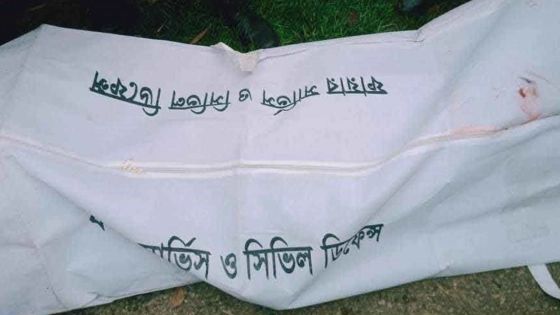 ফায়ার সার্ভিস ও সিভিল ডিফেন্স
সার্ভিস ও সিভিল ডিফেন্স